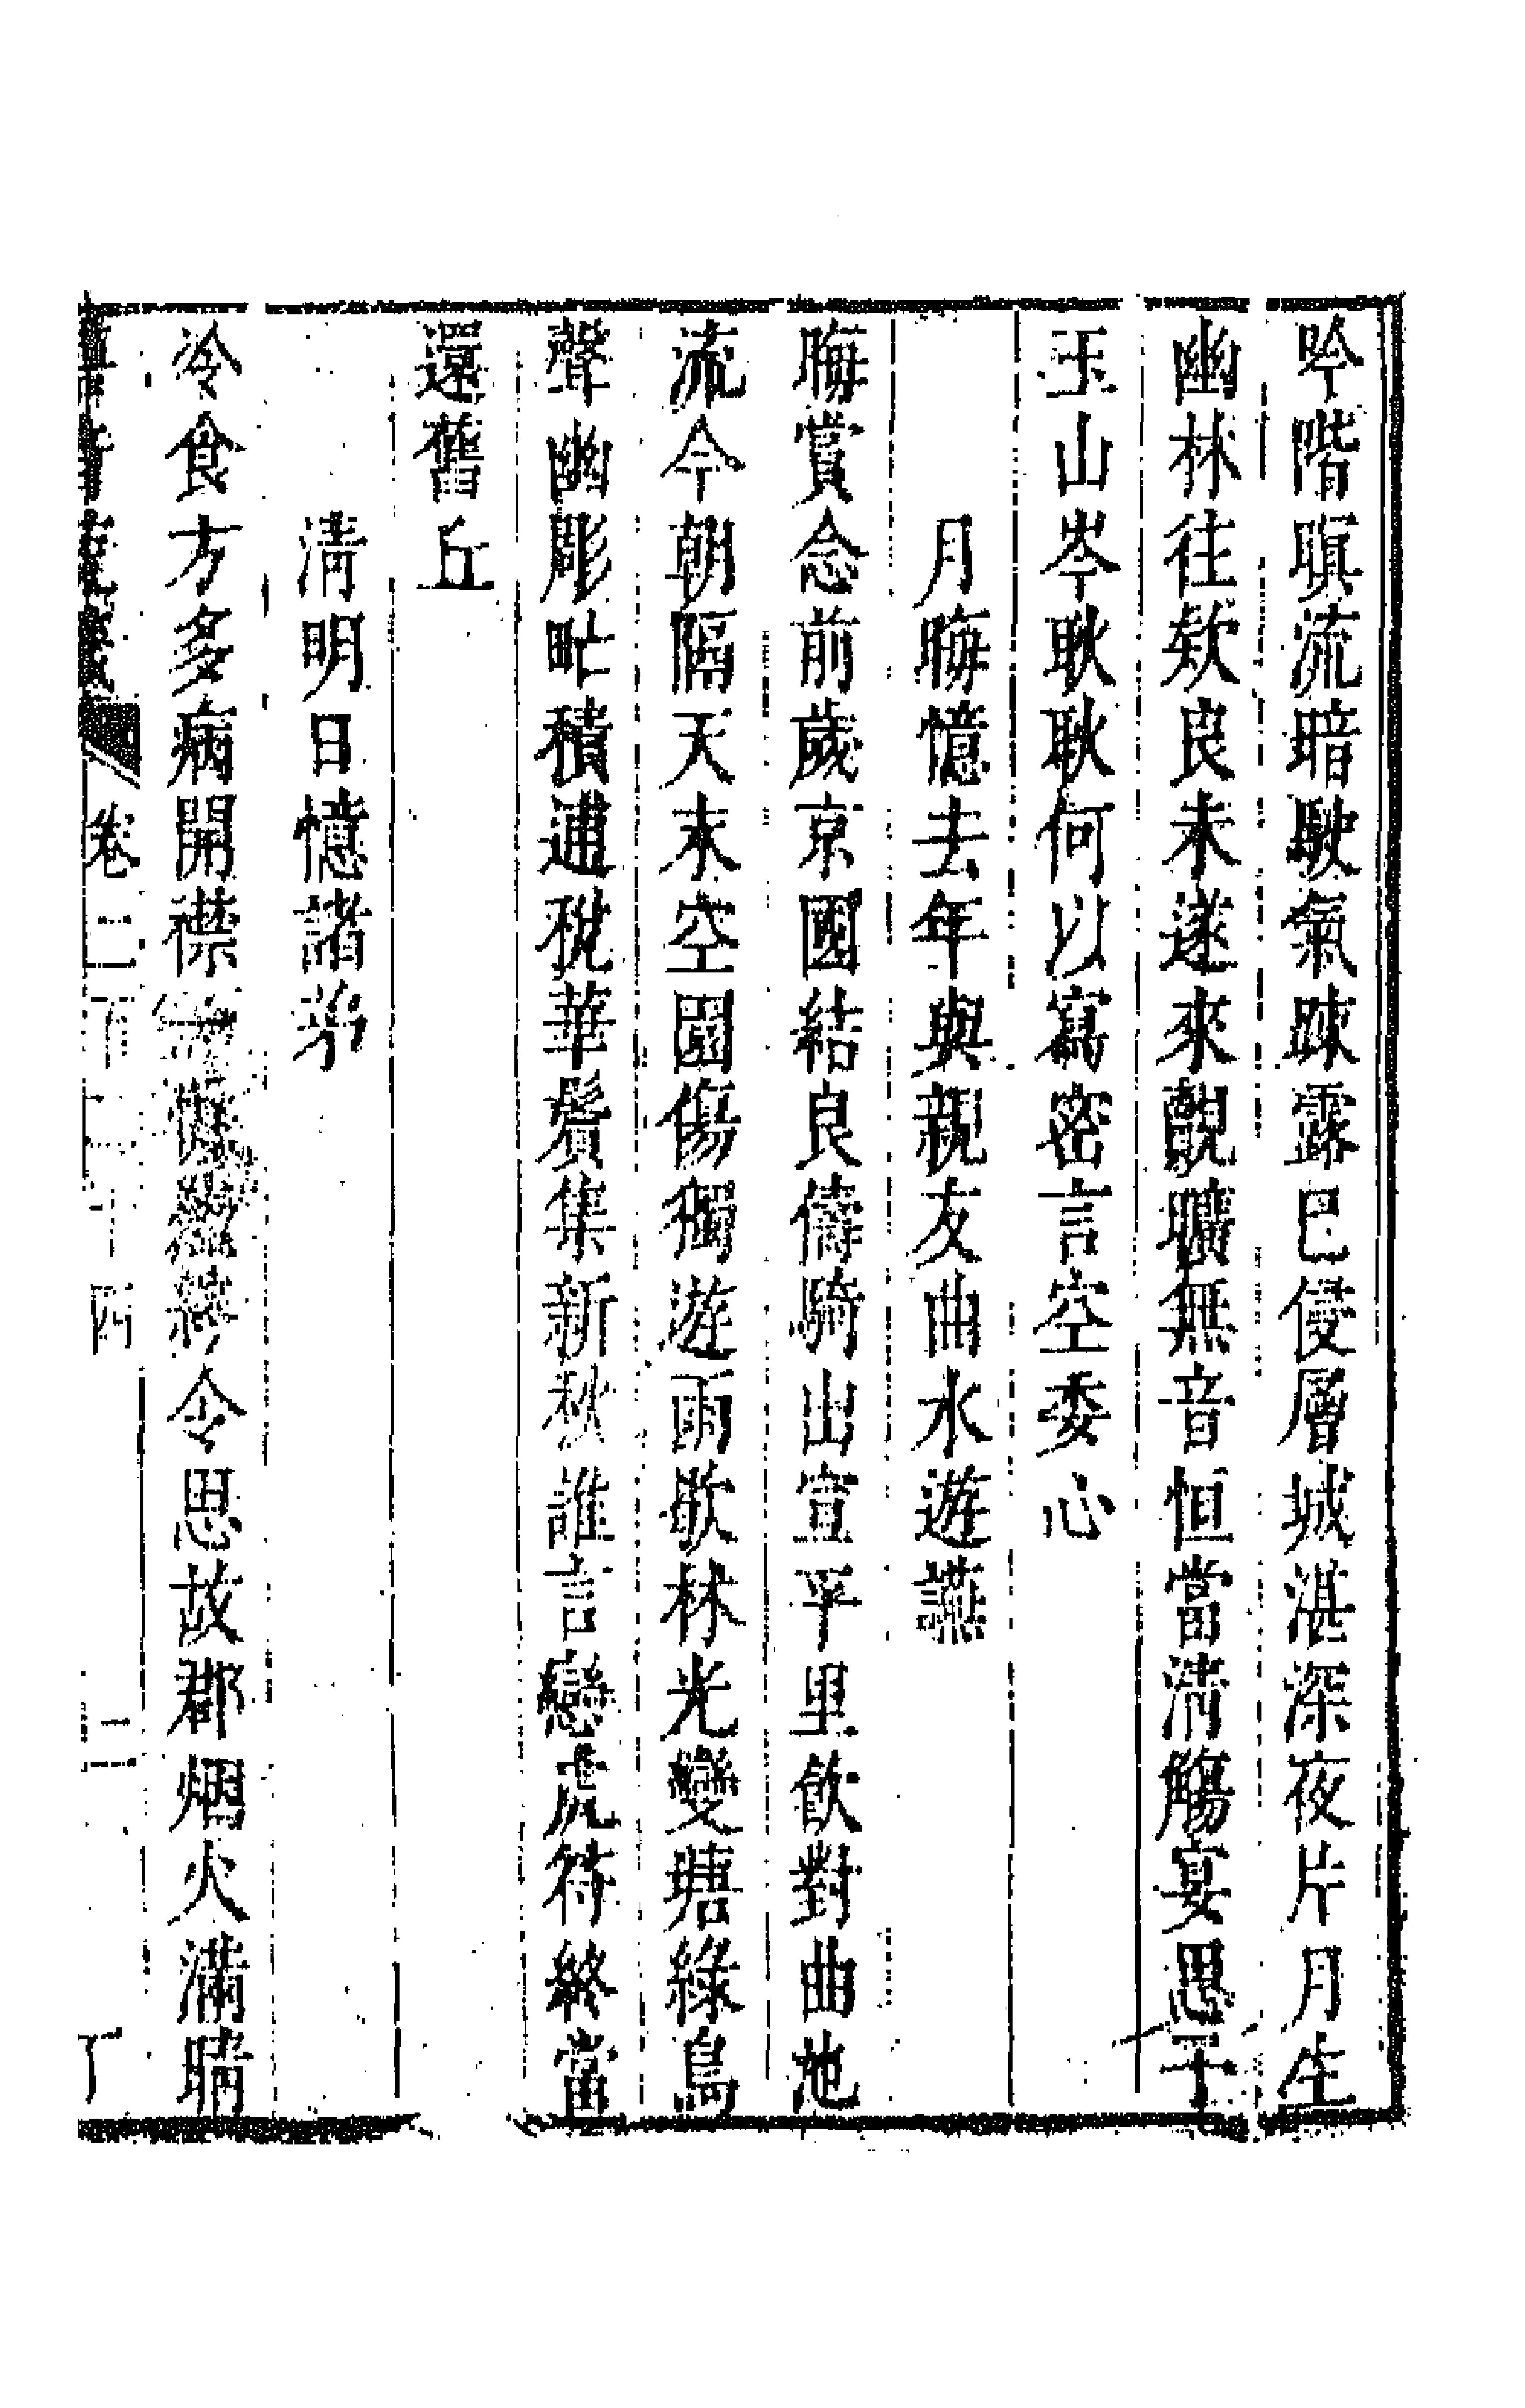 吟階暝流暗駛氣踈露巳侵層城湛深夜片月生
幽林往欸良未遂來覿曠無音恒當清觴宴思子
玉山岑耿耿何以寫密言空委心
月晦憶去年與親友曲水遊讌
晦賞念前歲京國結良儔騎出宣平里飲對曲池
流今朝隔天末空園傷獨遊雨歇林光變塘綠鳥
聲幽彫甿積逋稅華鬢集新秋誰言戀虎符終當
還舊丘
清明日憶諸弟
冷食方多病開襟一忻然終令思故郡烟火滿晴
卷二百二十四